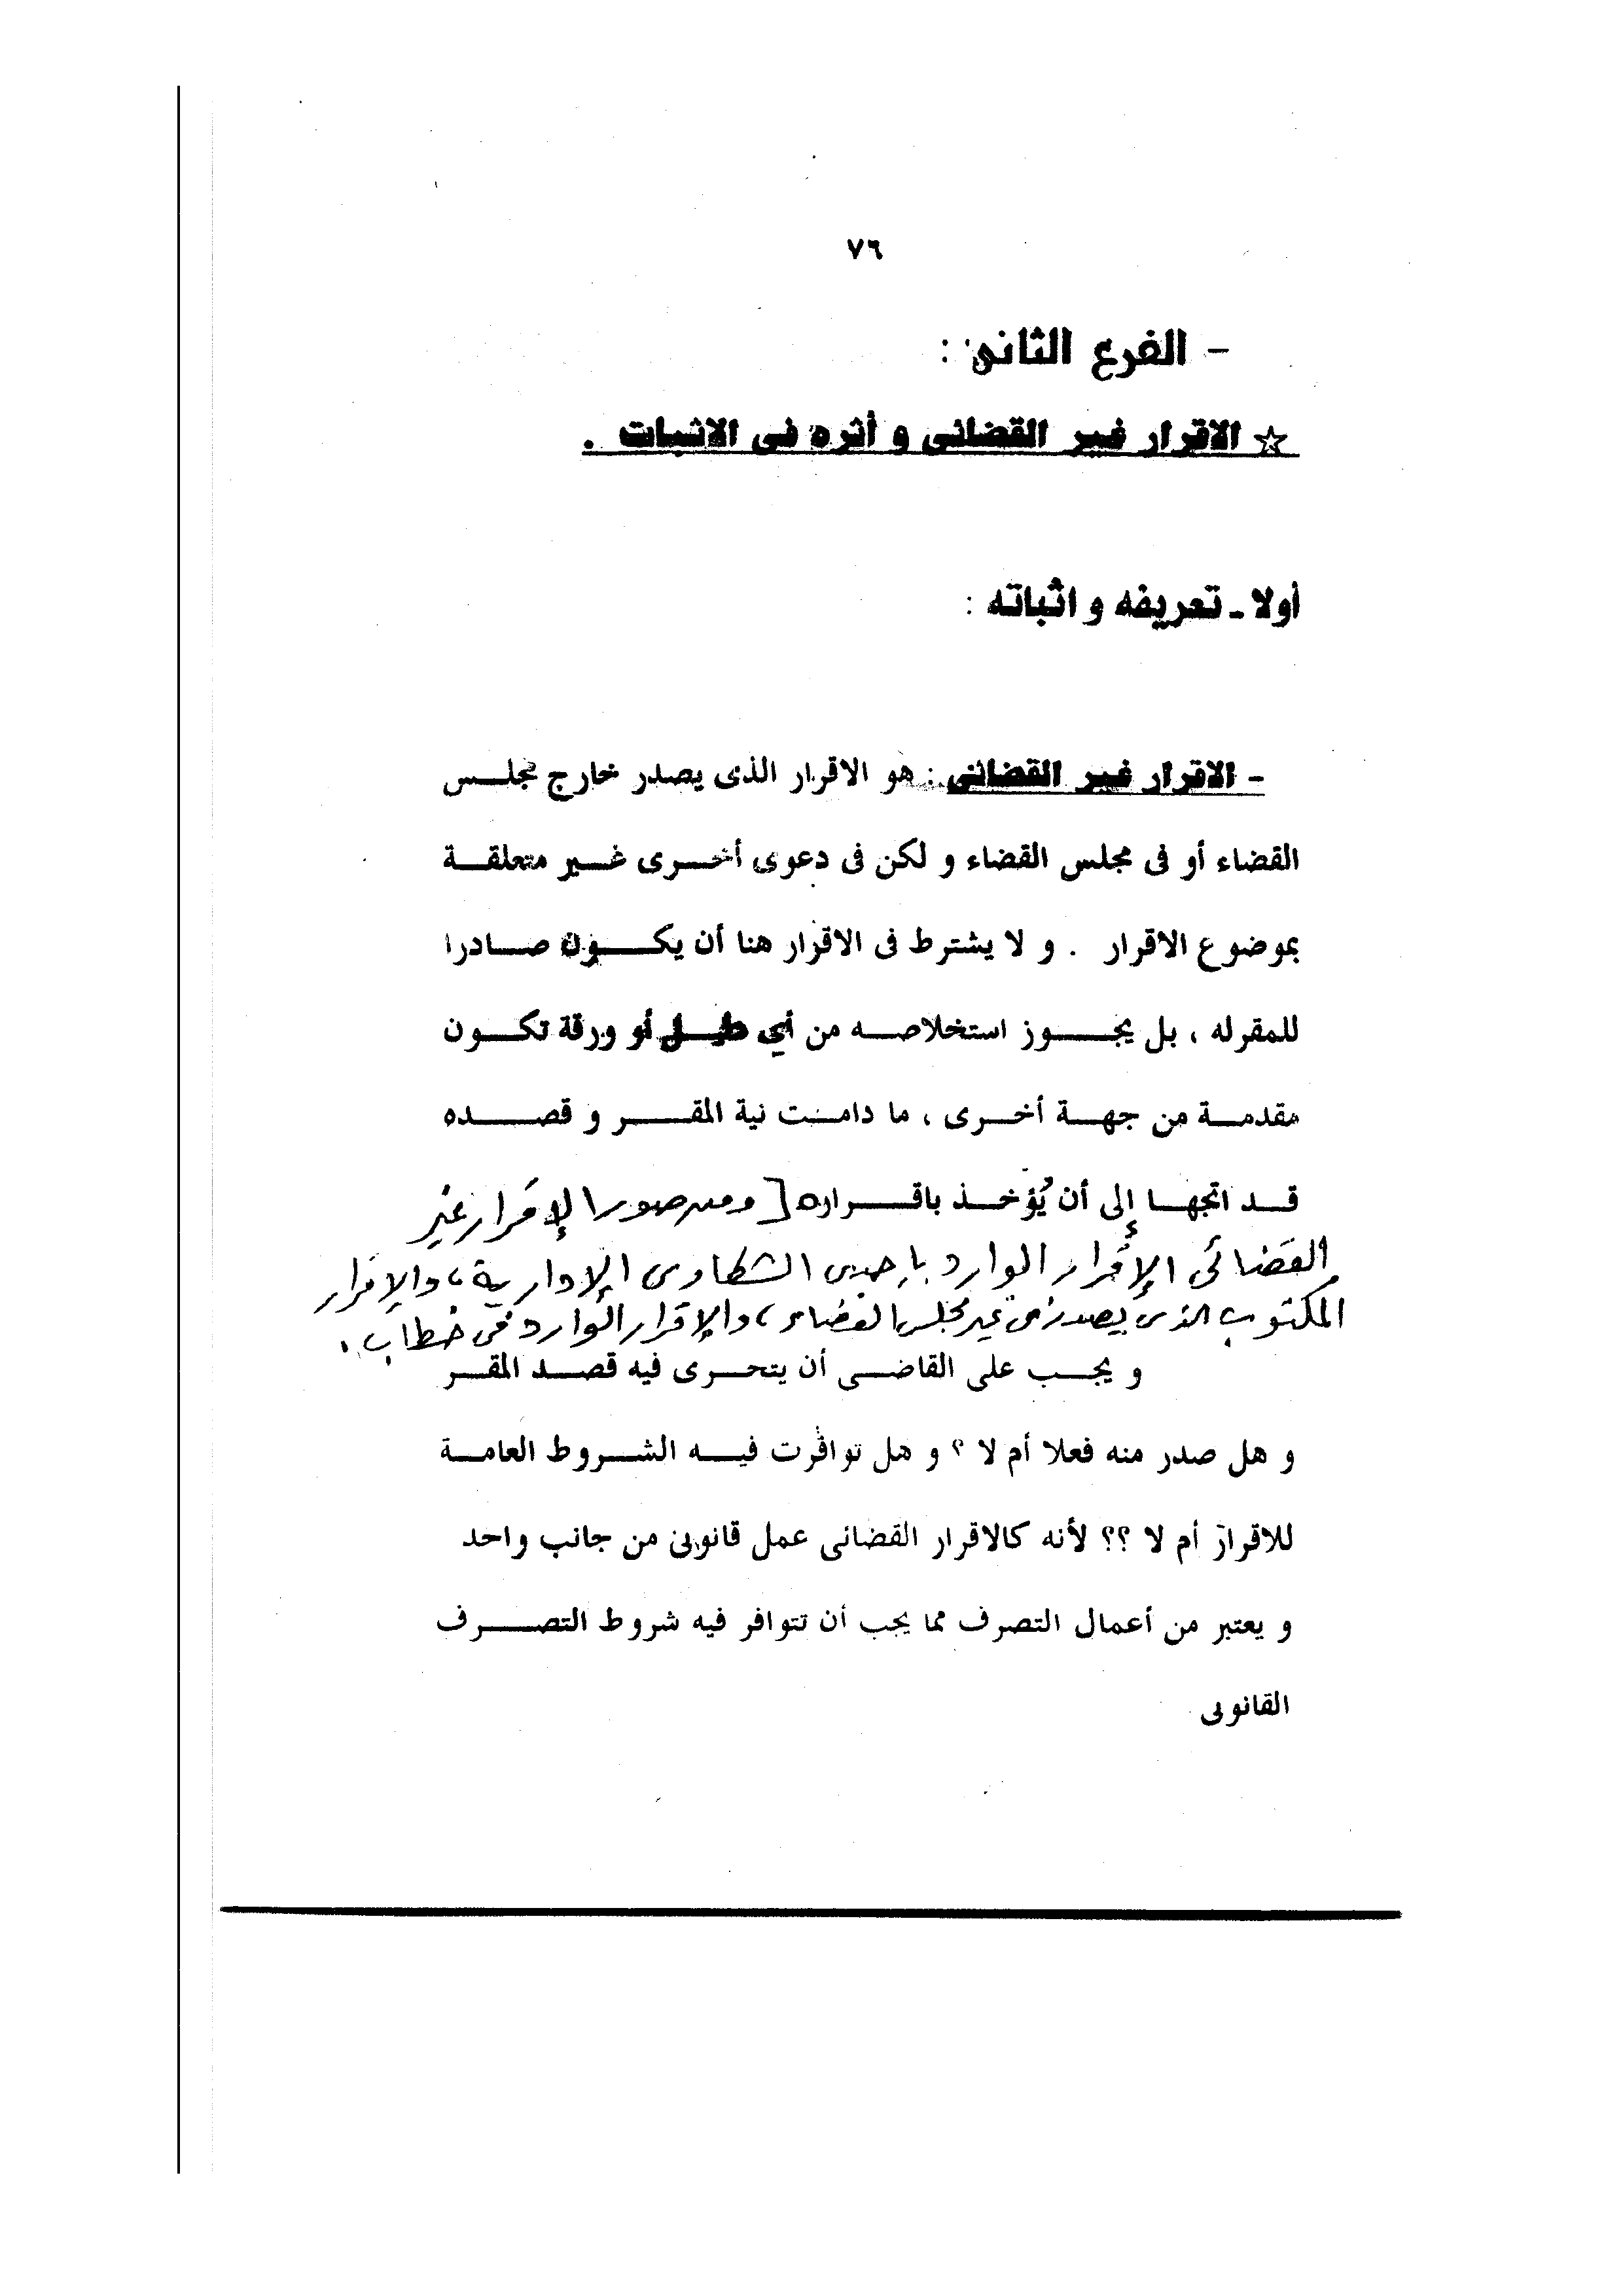 ٧٦
- الفرع الثانى :
☆ الاقرار غير القضائى و أثره فى الاثبات .
أولا ـ تعريفه و اثباته :
- الاقرار غير القضائى : هو الاقرار الذى يصدر خارج مجلس
القضاء أو فى مجلس القضاء و لكن فى دعوى أخرى غير متعلقة
بموضوع الاقرار . و لا يشترط فى الاقرار هنا أن يكون صادرا
للمقرله ، بل يجوز استخلاصه من أي دليل أو ورقة تكون
مقدمة من جهة أخرى ، ما دامت نية المقر و قصده
قد اتجها إلى أن يُؤخذ باقراره [ ومن صور الإقرار غير
القضائى الإقرار الوارد بإحدى الشكاوى الإدارية ، والإقرار
المكتوب الذى يصدر فى غير مجلس القضاء ، والإقرار الوارد فى خطاب .
و يجب على القاضى أن يتحرى فيه قصد المقر
و هل صدر منه فعلا أم لا ؟ و هل توافرت فيه الشروط العامة
للاقرار أم لا ؟؟ لأنه كالاقرار القضائى عمل قانونى من جانب واحد
و يعتبر من أعمال التصرف مما يجب أن تتوافر فيه شروط التصرف
القانونى